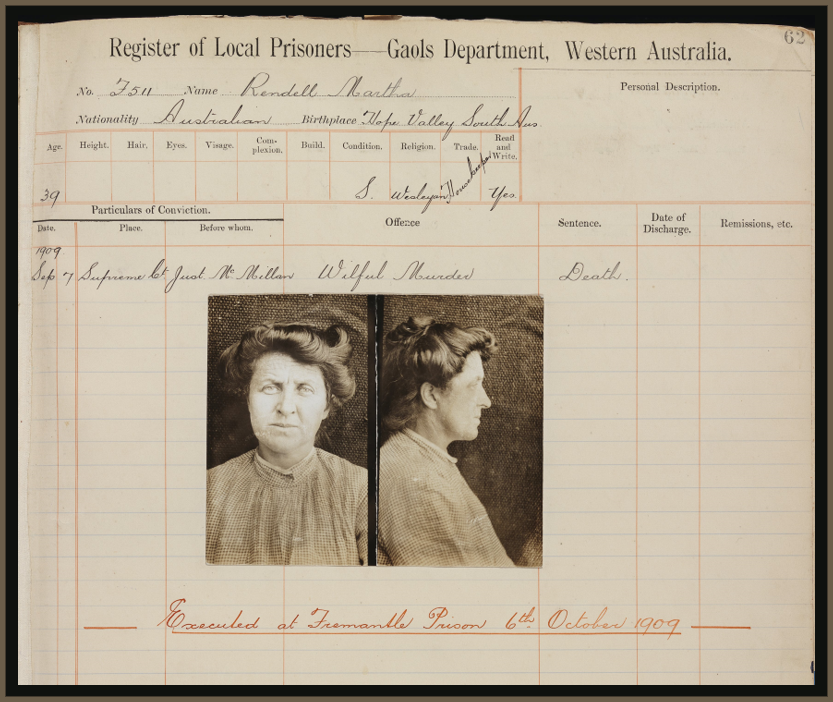 62
Register of Local Prisoners—Gaols Department, Western Australia.
No. F511 Name Rendell Martha
Personal Description.
Nationality Australian Birthplace Hope Valley South Aus.
Age. Height. Hair. Eyes. Visage. Com-plexion. Build. Condition. Religion. Trade. Read and Write.
39 S. Wesleyan Housekeeper Yes.
Particulars of Conviction.
Date. Place. Before whom. Offence Sentence. Date of Discharge. Remissions, etc.
1909
Sep 7 Supreme Ct Just. Mc Millan Wilful Murder Death.
Executed at Fremantle Prison 6th October 1909